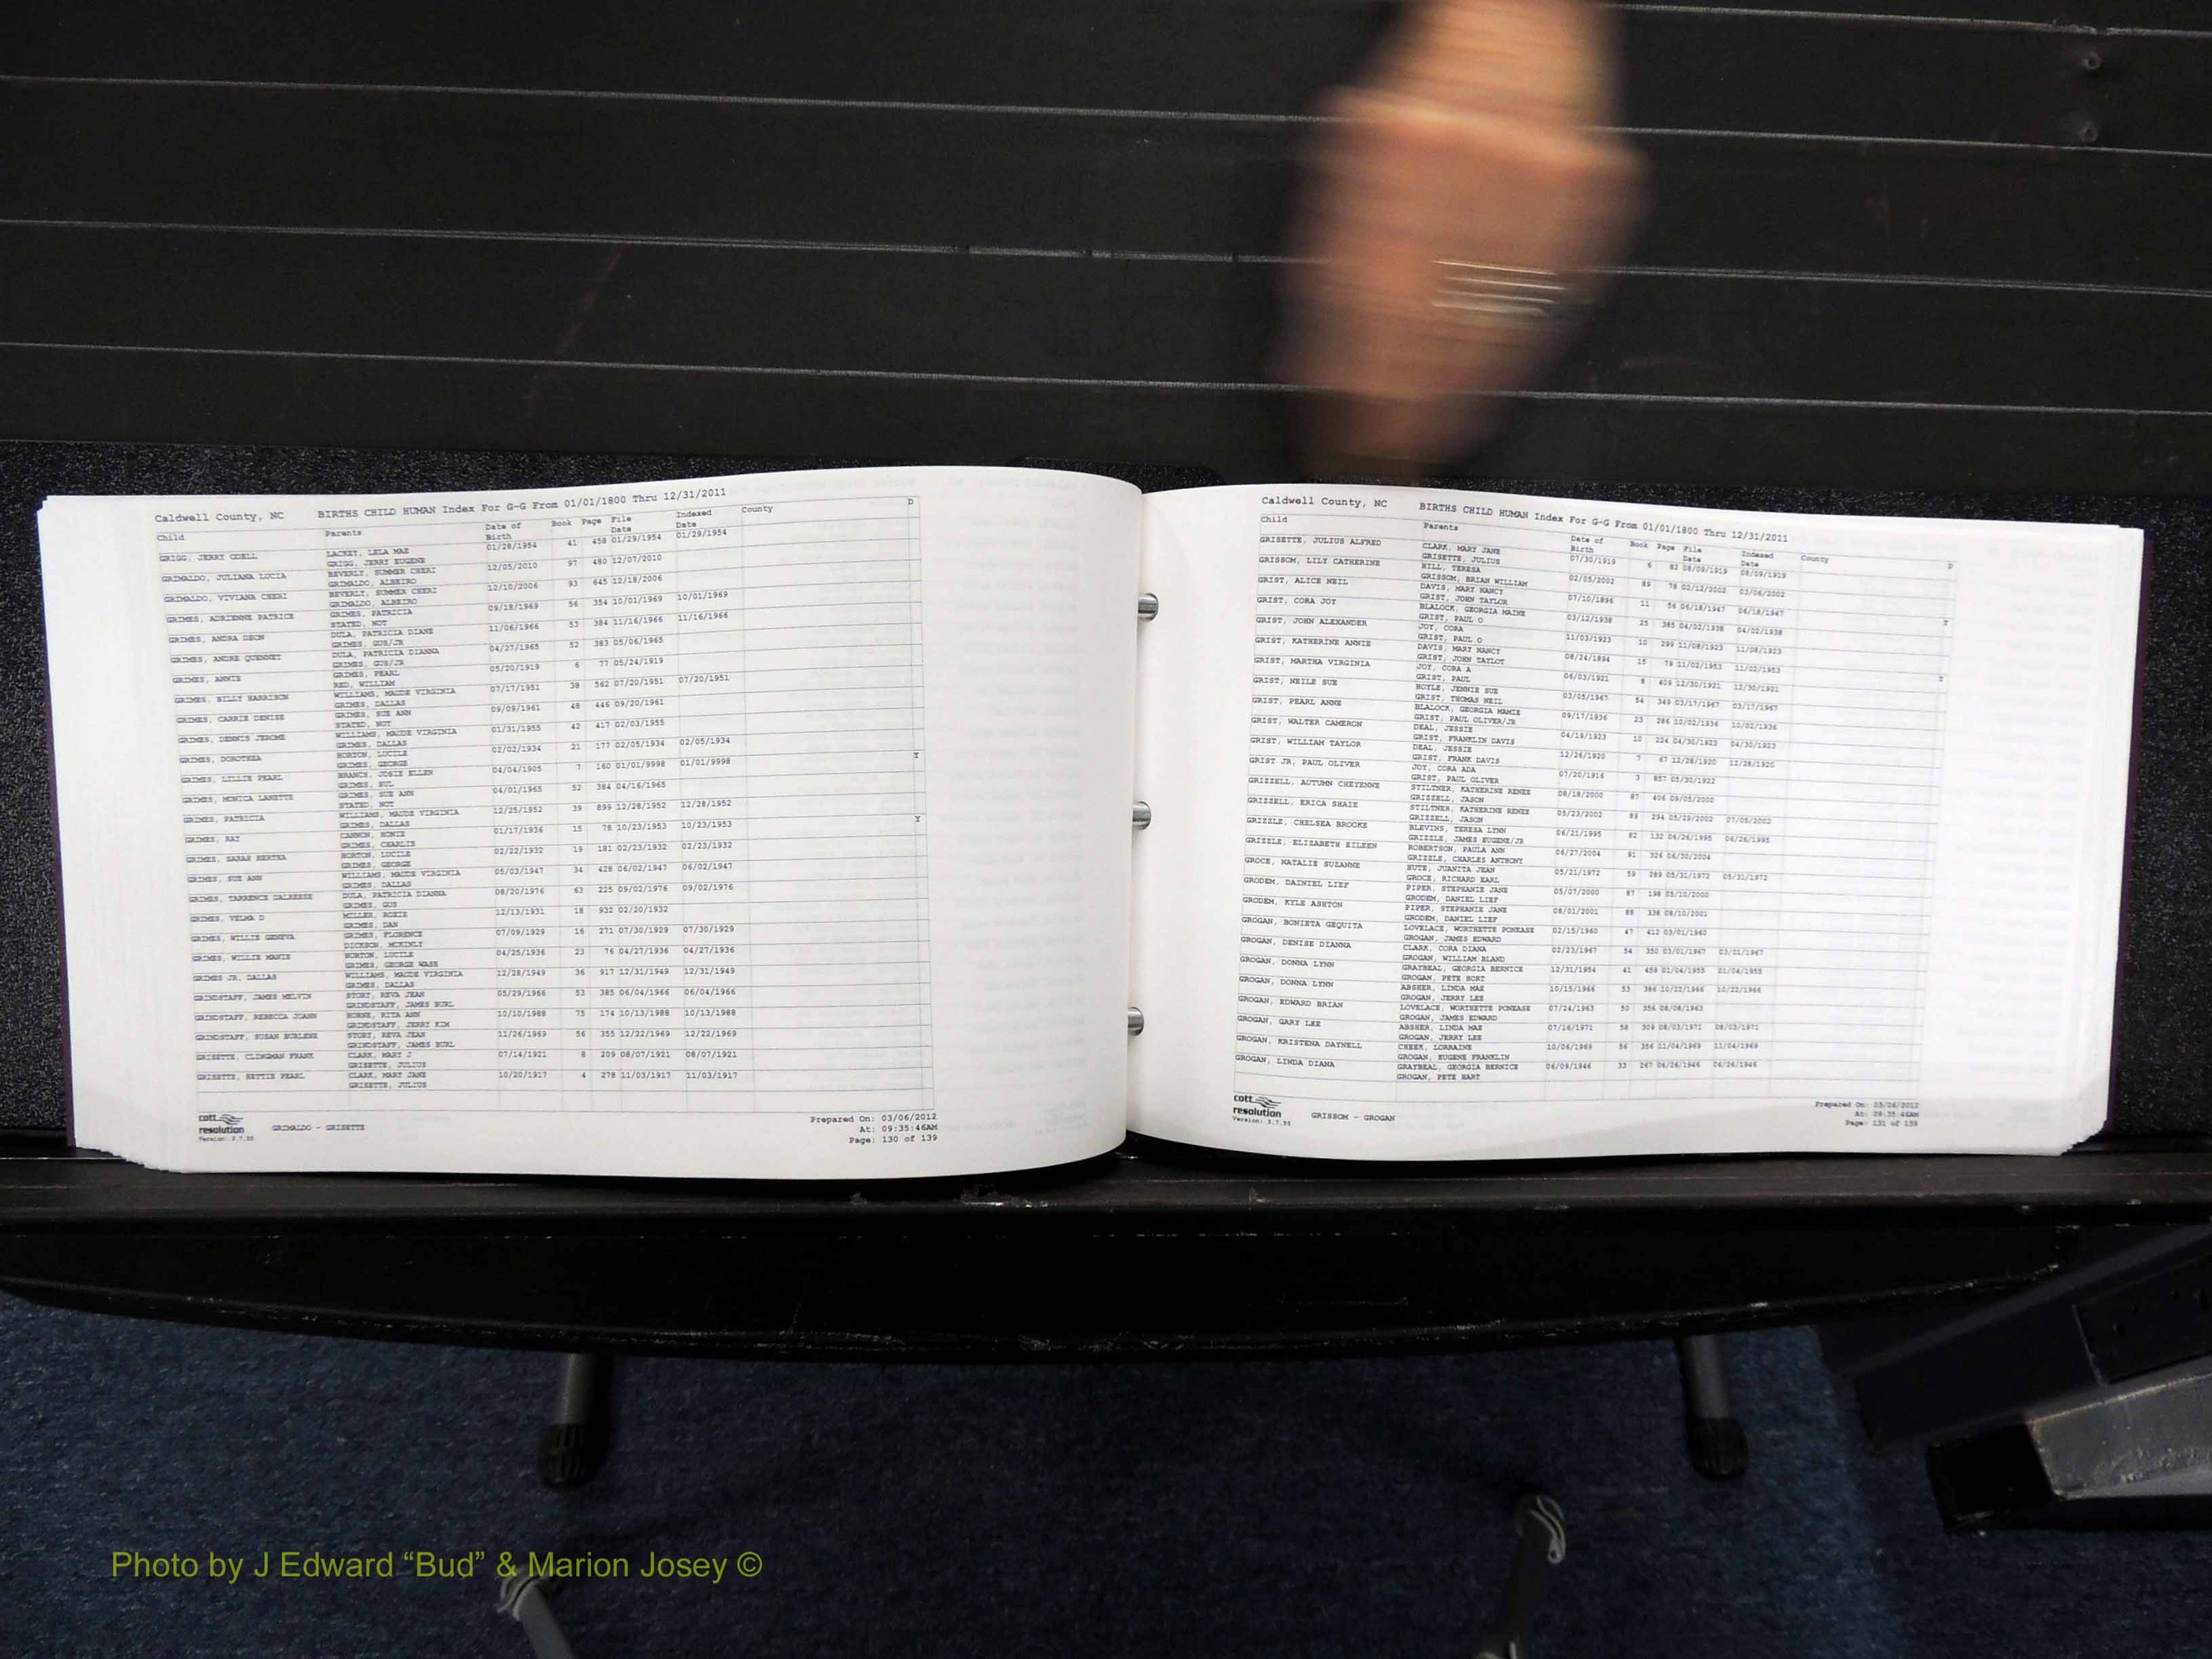 Caldwell County, NC BIRTHS CHILD HUMAN Index For G-G From 01/01/1800 Thru 12/31/2011
Child Parents Date of Birth Book Page File Date Indexed Date County D
GRIGG, JERRY ODELL LACKEY, LELA MAE 01/28/1954 41 458 01/29/1954 01/29/1954
GRIGG, JERRY EUGENE
GRIMALDO, JULIANA LUCIA BEVERLY, SUMMER CHERI 12/05/2010 97 480 12/07/2010
GRIMALDO, ALBEIRO
GRIMALDO, VIVIANA CHERI BEVERLY, SUMMER CHERI 12/10/2006 93 645 12/18/2006
GRIMALDO, ALBEIRO
GRIMES, ADRIENNE PATRICE GRIMES, PATRICIA 09/18/1969 56 354 10/01/1969 10/01/1969
STATED, NOT
GRIMES, ANDRA DEON DULA, PATRICIA DIANE 11/06/1966 53 384 11/16/1966 11/16/1966
GRIMES, GUS/JR
GRIMES, ANDRE QUENNET DULA, PATRICIA DIANNA 04/27/1965 52 383 05/06/1965
GRIMES, GUS/JR
GRIMES, ANNIE GRIMES, PEARL 05/20/1919 6 77 05/24/1919
RED, WILLIAM
GRIMES, BILLY HARRISON WILLIAMS, MAUDE VIRGINIA 07/17/1951 38 562 07/20/1951 07/20/1951
GRIMES, DALLAS
GRIMES, CARRIE DENISE GRIMES, SUE ANN 09/09/1961 48 446 09/20/1961
STATED, NOT
GRIMES, DENNIS JEROME WILLIAMS, MAUDE VIRGINIA 01/31/1955 42 417 02/03/1955
GRIMES, DALLAS
GRIMES, DOROTHEA HORTON, LUCILE 02/02/1934 21 177 02/05/1934 02/05/1934
GRIMES, GEORGE
GRIMES, LILLIE PEARL BRANCH, JOSIE ELLEN 04/04/1905 7 160 01/01/9998 01/01/9998 Y
GRIMES, HUL
GRIMES, MONICA LANETTE GRIMES, SUE ANN 04/01/1965 52 384 04/16/1965
STATED, NOT
GRIMES, PATRICIA WILLIAMS, MAUDE VIRGINIA 12/25/1952 39 899 12/28/1952 12/28/1952
GRIMES, DALLAS
GRIMES, RAY CANNON, 01/17/1936 15 78 10/23/1953 10/23/1953 Y
GRIMES, CHARLIE
GRIMES, SARAH BERTHA HORTON, LUCILE 02/22/1932 19 181 02/23/1932 02/23/1932
GRIMES, GEORGE
GRIMES, SUE ANN WILLIAMS, MAUDE VIRGINIA 05/03/1947 34 428 06/02/1947 06/02/1947
GRIMES, DALLAS
GRIMES, TARRENCE DALREESE DULA, PATRICIA DIANNA 08/20/1976 63 225 09/02/1976 09/02/1976
GRIMES, GUS
GRIMES, VELMA D MILLER, ROXIE 12/13/1931 18 932 02/20/1932
GRIMES, DAN
GRIMES, WILLIE GENEVA GRIMES, FLORENCE 07/09/1929 16 271 07/30/1929 07/30/1929
DICKSON, MCKINLY
GRIMES, WILLIE MANIE HORTON, LUCILE 04/25/1936 23 76 04/27/1936 04/27/1936
GRIMES, GEORGE WASH
GRIMES JR, DALLAS WILLIAMS, MAUDE VIRGINIA 12/28/1949 36 917 12/31/1949 12/31/1949
GRIMES, DALLAS
GRINDSTAFF, JAMES MELVIN STORY, REVA JEAN 05/29/1966 53 385 06/04/1966 06/04/1966
GRINDSTAFF, JAMES BURL
GRINDSTAFF, REBECCA JOANN HORNE, RITA ANN 10/10/1988 75 174 10/13/1988 10/13/1988
GRINDSTAFF, JERRY KIM
GRINDSTAFF, SUSAN BURLENE STORY, REVA JEAN 11/26/1969 56 355 12/22/1969 12/22/1969
GRINDSTAFF, JAMES BURL
GRISETTE, CLINGMAN FRANK CLARK, MARY J 07/14/1921 8 209 08/07/1921 08/07/1921
GRISETTE, JULIUS
GRISETTE, HETTIE PEARL CLARK, MARY JANE 10/20/1917 4 278 11/03/1917 11/03/1917
GRISETTE, JULIUS
cott resolution
Version: 3.7.35
GRIMALDO - GRISETTE
Prepared On: 03/06/2012
At: 09:35:46AM
Page: 130 of 139
Caldwell County, NC BIRTHS CHILD HUMAN Index For G-G From 01/01/1800 Thru 12/31/2011
Child Parents Date of Birth Book Page File Date Indexed Date County D
GRISETTE, JULIUS ALFRED CLARK, MARY JANE 07/30/1919 6 82 08/09/1919 08/09/1919
GRISETTE, JULIUS
GRISSOM, LILY CATHERINE HILL, TERESA 02/05/2002 89 78 02/12/2002 03/06/2002
GRISSOM, BRIAN WILLIAM
GRIST, ALICE NEIL DAVIS, MARY NANCY 07/10/1896 11 56 06/18/1947 06/18/1947 Y
GRIST, JOHN TAYLOR
GRIST, CORA JOY BLALOCK, GEORGIA MAINE 03/12/1938 25 385 04/02/1938 04/02/1938
GRIST, PAUL O
GRIST, JOHN ALEXANDER JOY, CORA 11/03/1923 10 299 11/08/1923 11/08/1923
GRIST, PAUL O
GRIST, KATHERINE ANNIE DAVIS, MARY NANCY 08/24/1894 15 79 11/02/1953 11/02/1953 Y
GRIST, JOHN TAYLOT
GRIST, MARTHA VIRGINIA JOY, CORA A 06/03/1921 8 409 12/30/1921 12/30/1921
GRIST, PAUL
GRIST, NEILE SUE HOYLE, JENNIE SUE 03/05/1967 54 349 03/17/1967 03/17/1967
GRIST, THOMAS NEIL
GRIST, PEARL ANNE BLALOCK, GEORGIA MAMIE 09/17/1936 23 286 10/02/1936 10/02/1936
GRIST, PAUL OLIVER/JR
GRIST, WALTER CAMERON DEAL, JESSIE 04/19/1923 10 224 04/30/1923 04/30/1923
GRIST, FRANKLIN DAVIS
GRIST, WILLIAM TAYLOR DEAL, JESSIE 12/26/1920 7 67 12/28/1920 12/28/1920
GRIST, FRANK DAVIS
GRIST JR, PAUL OLIVER JOY, CORA ADA 07/20/1916 3 857 05/30/1922
GRIST, PAUL OLIVER
GRIZZELL, AUTUMN CHEYENNE STILTNER, KATHERINE RENEE 08/18/2000 87 406 09/05/2000
GRIZZELL, JASON
GRIZZELL, ERICA SHAIE STILTNER, KATHERINE RENEE 05/23/2002 89 294 05/29/2002 07/05/2002
GRIZZELL, JASON
GRIZZLE, CHELSEA BROOKE BLEVINS, TERESA LYNN 06/21/1995 82 132 06/26/1995 06/26/1995
GRIZZLE, JAMES EUGENE/JR
GRIZZLE, ELIZABETH EILEEN ROBERTSON, PAULA ANN 06/27/2004 91 326 06/30/2004
GRIZZLE, CHARLES ANTHONY
GROCE, NATALIE SUZANNE HUTE, JUANITA JEAN 05/21/1972 59 289 05/31/1972 05/31/1972
GROCE, RICHARD EARL
GRODEM, DAINIEL LIEF PIPER, STEPHANIE JANE 05/07/2000 87 198 05/10/2000
GRODEM, DANIEL LIEF
GRODEM, KYLE ASHTON PIPER, STEPHANIE JANE 08/01/2001 88 338 08/10/2001
GRODEM, DANIEL LIEF
GROGAN, BONIETA GEQUITA LOVELACE, WORTHETTE PONEASE 02/15/1960 47 412 03/01/1960
GROGAN, JAMES EDWARD
GROGAN, DENISE DIANNA CLARK, CORA DIANA 02/23/1967 54 350 03/01/1967 03/01/1967
GROGAN, WILLIAM BLAND
GROGAN, DONNA LYNN GRAYBEAL, GEORGIA BERNICE 12/31/1954 41 459 01/04/1955 01/04/1955
GROGAN, PETE HORT
GROGAN, DONNA LYNN ABSHER, LINDA MAE 10/15/1966 53 386 10/22/1966 10/22/1966
GROGAN, JERRY LEE
GROGAN, EDWARD BRIAN LOVELACE, WORTHETTE PONEASE 07/24/1963 50 356 08/08/1963
GROGAN, JAMES EDWARD
GROGAN, GARY LEE ABSHER, LINDA MAE 07/16/1971 58 309 08/03/1971 08/03/1971
GROGAN, JERRY LEE
GROGAN, KRISTENA DAYNELL CHEEK, LORRAINE 10/06/1969 56 356 11/04/1969 11/04/1969
GROGAN, EUGENE FRANKLIN
GROGAN, LINDA DIANA GRAYBEAL, GEORGIA BERNICE 06/09/1946 33 267 06/26/1946 06/26/1946
GROGAN, PETE HART
cott resolution
Version: 3.7.35
GRISSOM - GROGAN
Prepared On: 03/06/2012
At: 09:35:46AM
Page: 131 of 139
Photo by J Edward “Bud” & Marion Josey ©